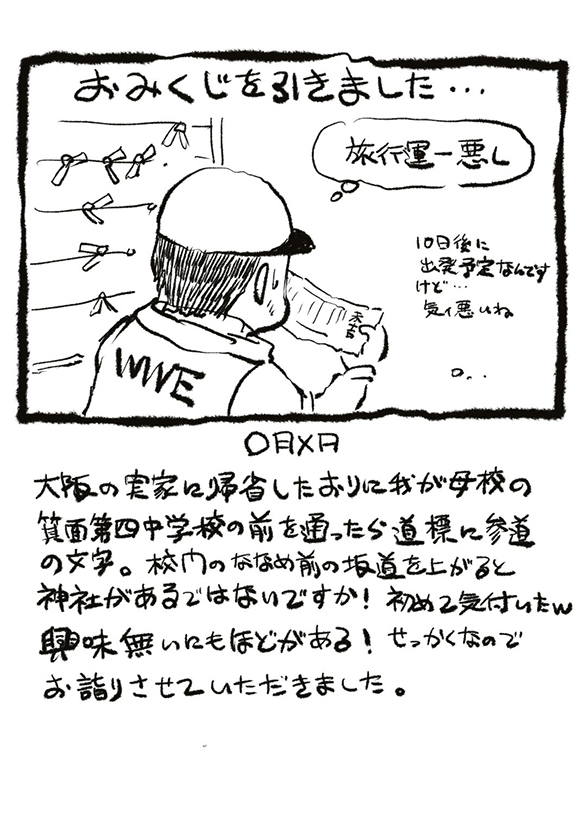 おみくじを引きました…
旅行運ー悪し
10日後に
出発予定なんです
けど…
気イ悪いね
末吉
WWE
〇月×日
大阪の実家に帰省したおりに我が母校の
箕面第四中学校の前を通ったら道標に参道
の文字。校門のななめ前の坂道を上がると
神社があるではないですか！初めて気付いたw
興味無いにもほどがある！せっかくなので
お詣りさせていただきました。